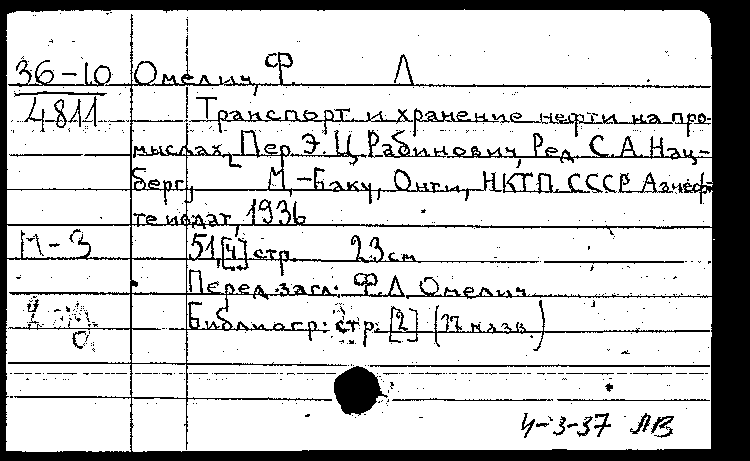 36-10 Омелич, Ф. Л
4811 Транспорт и хранение нефти на про-
мыслах, Пер. Э. Ц. Рабинович, Ред. С. А. Нац-
берг, М.-Баку, Онти, НКТП. СССР. Азнефт
теиздат, 1936
М-3 51,[4] стр. 23 см
Перед загл: Ф. Л. Омелич
2 экз. Библиогр: стр: [2] (17 назв.)
4-3-37 ЛВ